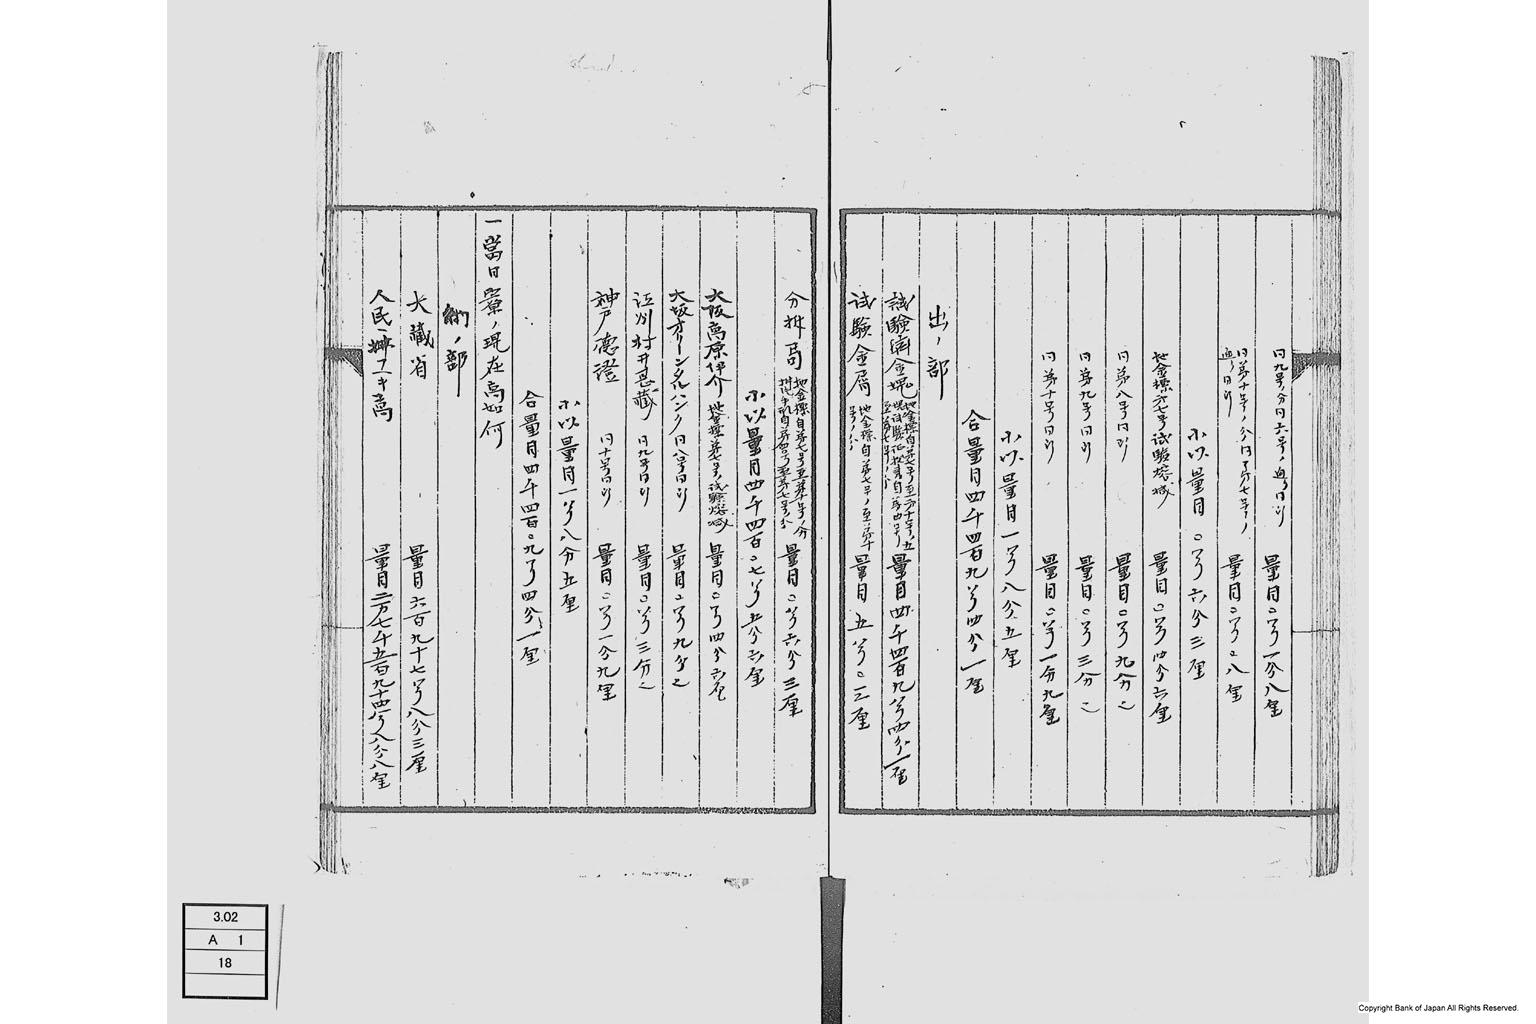 同九号ノ分同六号ノ廻り同断 量目〇匁一分八厘
同第十号ノ分同第七号ノ廻り同断 量目〇匁〇八厘
小以量目〇匁六分三厘
地金標第七号試験熔減 量目〇匁四分六厘
同第八号同断 量目〇匁九分〇
同第九号同断 量目〇匁三分〇
同第十号同断 量目〇匁一分九厘
小以量目一匁八分五厘
合量目四千四百九匁四分一厘
出ノ部
試験済金塊 量目四千四百九匁四分一厘
試験金屑 地金標自第七号至第十号ノ分 量目五匁〇三厘
分析局 地金標自第七号至第十号ノ分 量目〇匁六分三厘
小以量目四千四百〇七匁五分六厘
大阪高原伊介 地金標第七号ノ試験熔減 量目〇匁四分六厘
大坂オリーンタルバンク 同八号同断 量目〇匁九分〇
江州村井甚蔵 同九号同断 量目〇匁三分〇
神戸德澄 同十号同断 量目〇匁一分九厘
小以量目一匁八分五厘
合量目四千四百〇九匁四分一厘
一當日寮ノ現在高如何
納ノ部
大藏省 量目六百九十七匁八分三厘
人民ニ拂フヘキ高 量目二万七千五百九十四匁八分八厘
3.02
A 1
18
Copyright Bank of Japan All Rights Reserved.